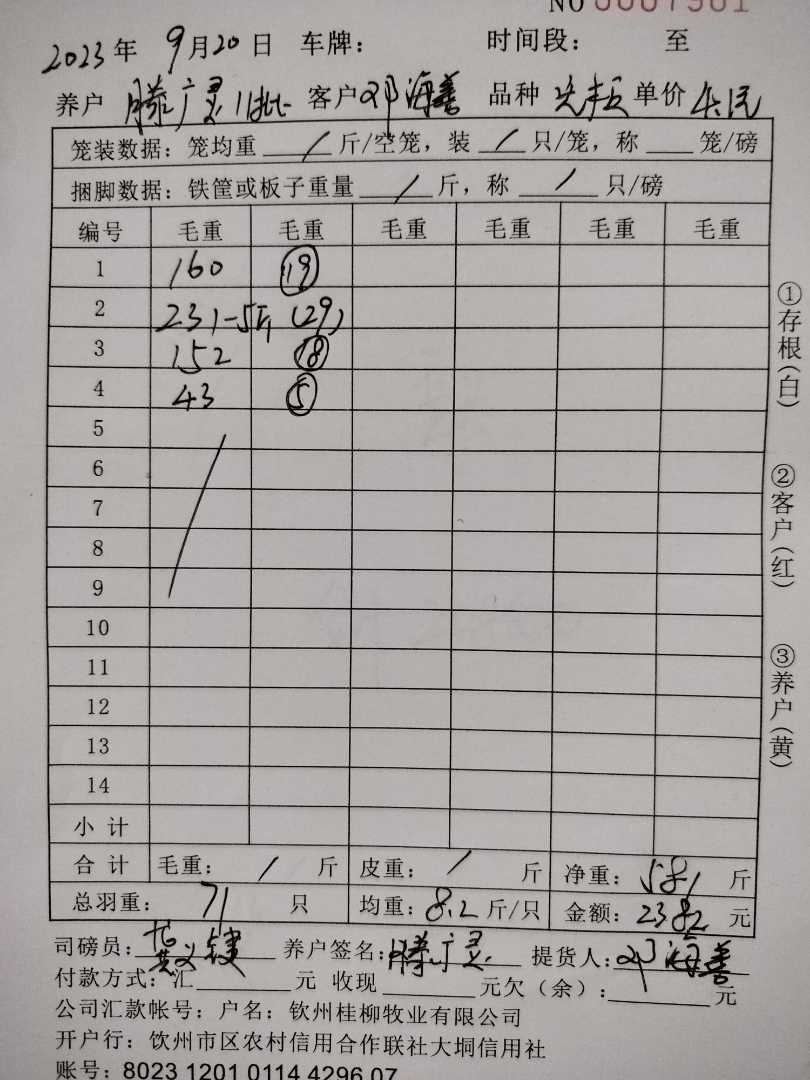 NO 0007901
2023年 9月20日 车牌: 时间段: 至
养户 滕广灵11批 客户 邓海善 品种 单价 4.1元
笼装数据: 笼均重 / 斤/空笼, 装 / 只/笼, 称 笼/磅
捆脚数据: 铁筐或板子重量 / 斤, 称 / 只/磅
编号 毛重 毛重 毛重 毛重 毛重 毛重
1 160 (19)
2 231-5斤 (29)
3 152 (18)
4 43 (5)
5
6
7
8
9
10
11
12
13
14
小计
合计 毛重: / 斤 皮重: / 斤 净重: 581 斤
总羽重: 71 只 均重: 8.2 斤/只 金额: 2382 元
司磅员: 养户签名: 滕广灵 提货人: 邓海善
付款方式: 汇 元 收现 元欠(余): 元
公司汇款帐号: 户名: 钦州桂柳牧业有限公司
开户行: 钦州市区农村信用合作联社大垌信用社
账号: 8023 1201 0114 4296 07
①存根(白)
②客户(红)
③养户(黄)